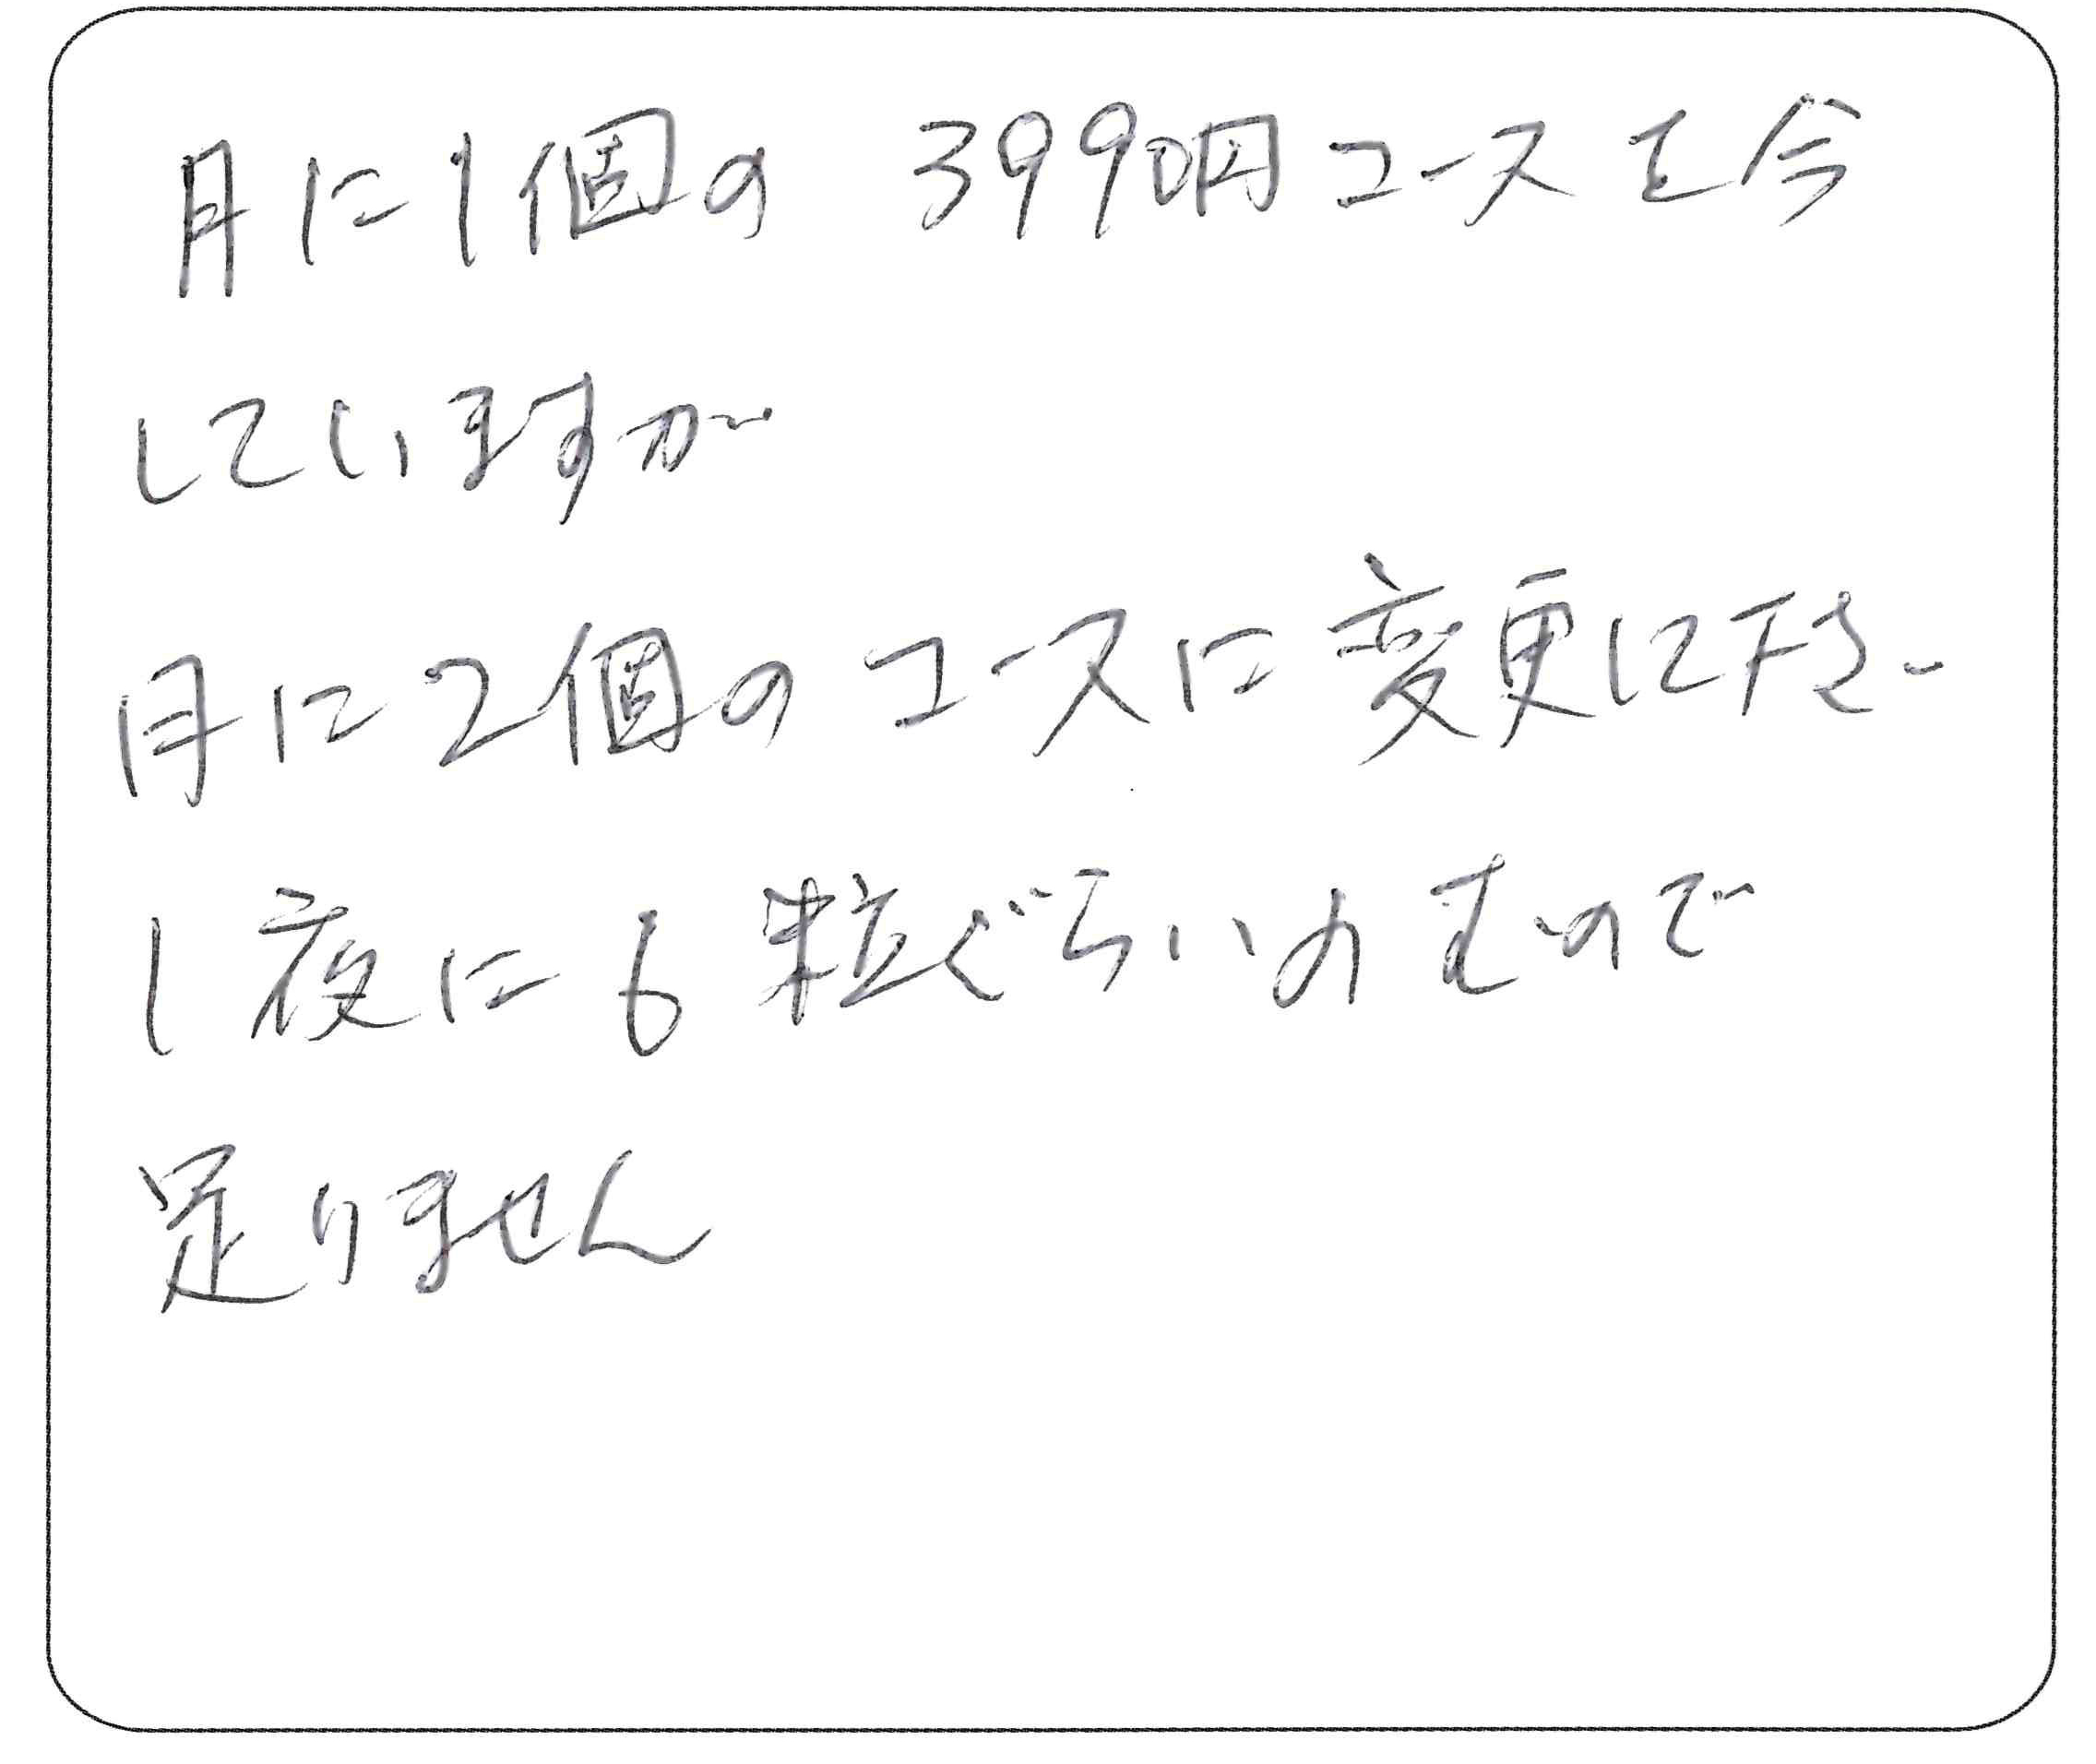 月に1個の 3990円コースを今
していますが
月に2個のコースに変更して下さい
1夜に6粒ぐらいのむので
足りません